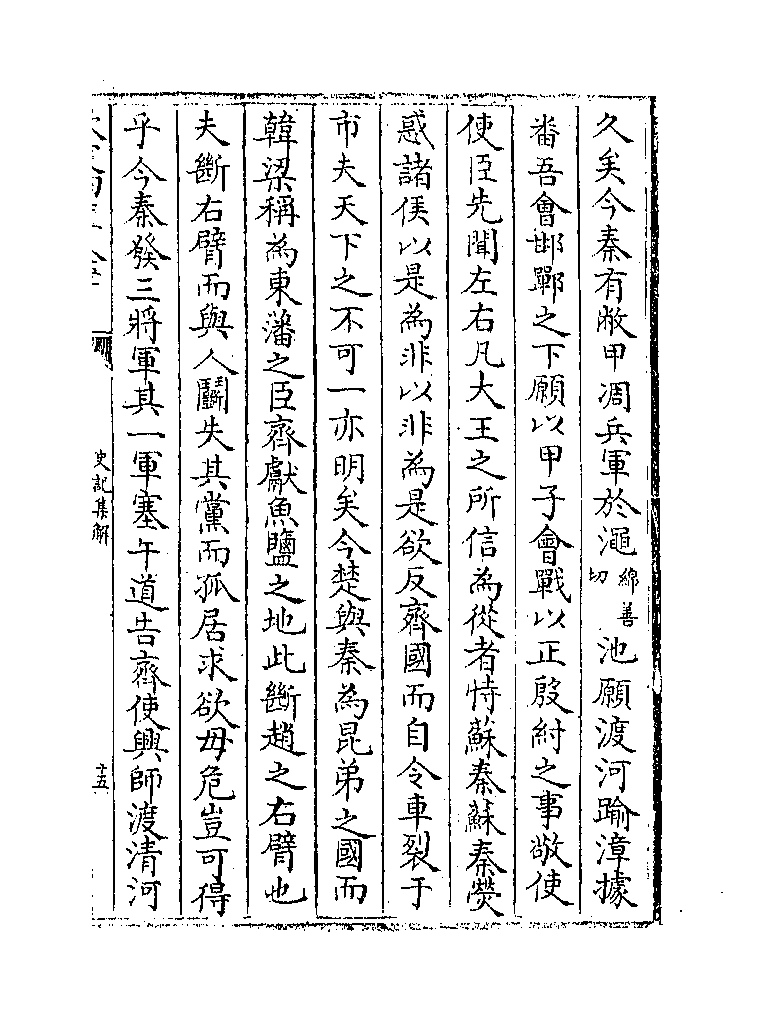 久矣今秦有敝甲凋兵軍於澠綿善切池願渡河踰漳據
番吾會邯鄲之下願以甲子會戰以正殷紂之事敬使
使臣先聞左右凡大王之所信為從者恃蘇秦蘇秦熒
惑諸侯以是為非以非為是欲反齊國而自令車裂于
市夫天下之不可一亦明矣今楚與秦為昆弟之國而
韓梁稱為東藩之臣齊獻魚鹽之地此斷趙之右臂也
夫斷右臂而與人鬬失其黨而孤居求欲毋危豈可得
乎今秦發三將軍其一軍塞午道告齊使興師渡清河
史記集解
十五